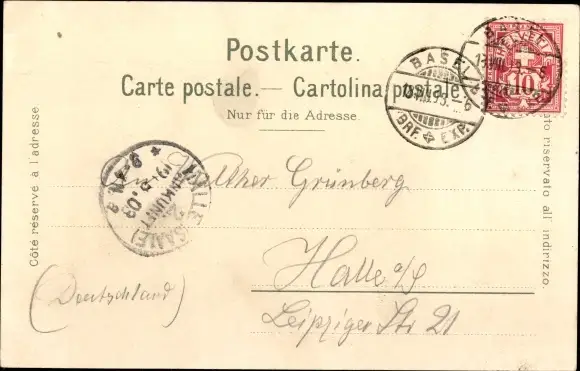 Postkarte.
Carte postale.— Cartolina postale.
Nur für die Adresse.
Côté réservé à l'adresse
Lato riservato all'indirizzo.
HELVETIA
10
BASEL
BRF. EXP.
HALLE (SAALE)
ANKUNFT
Grünberg
Halle a/S
Leipziger Str 21
(Deutschland)